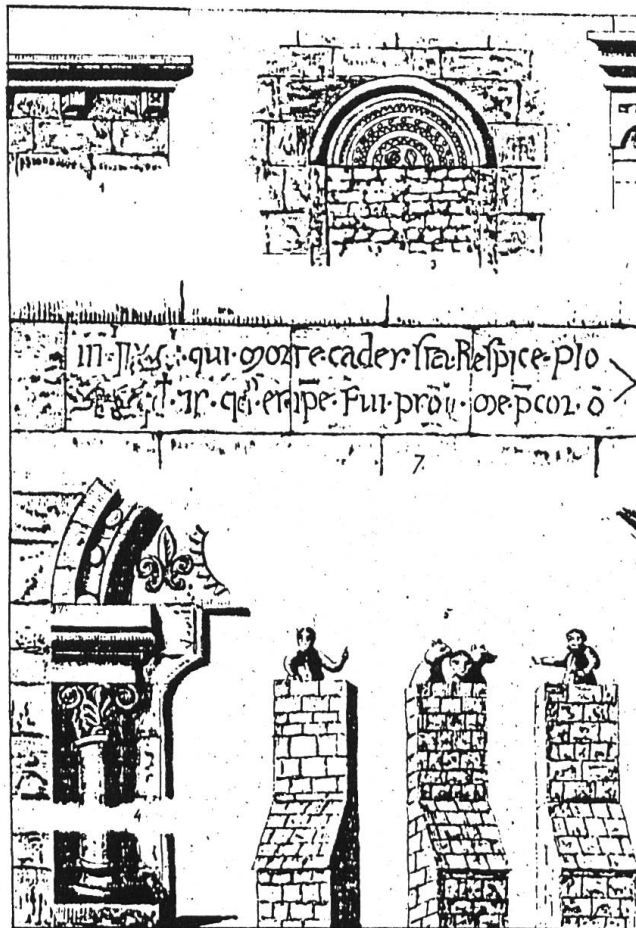 1
3
qui·morte·cades·sta·Respice·plo
ip̄e·Fui·pro me·p̄cor·ō
7
5
4